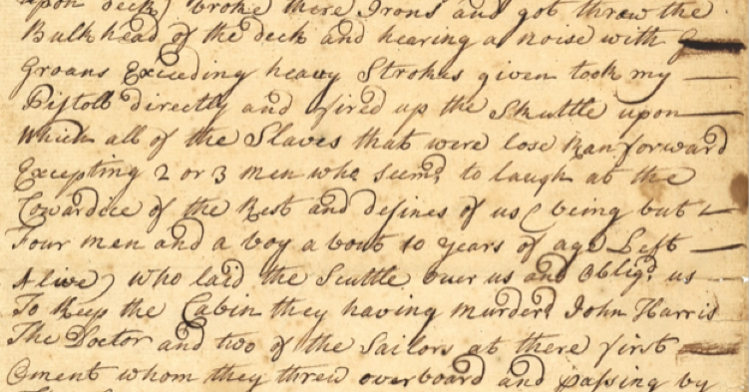 upon deck) broke there Irons and got threw the
Bulkhead of the deck and hearing a noise with
Groans Exceeding heavy Strokes given took my
Pistoll directly and fired up the Skuttle upon
which all of the Slaves that were lose Ran forward
Excepting 2 or 3 men who seemd to laugh at the
Cowardice of the Rest and defines of us (being but
Four men and a boy about 10 years of age Left
Alive) who laid the Scuttle over us and Obligd us
To Keep the Cabin they having murderd John Harris
The Doctor and two of the Sailors at there first
Cment whom they threw overboard and passing by